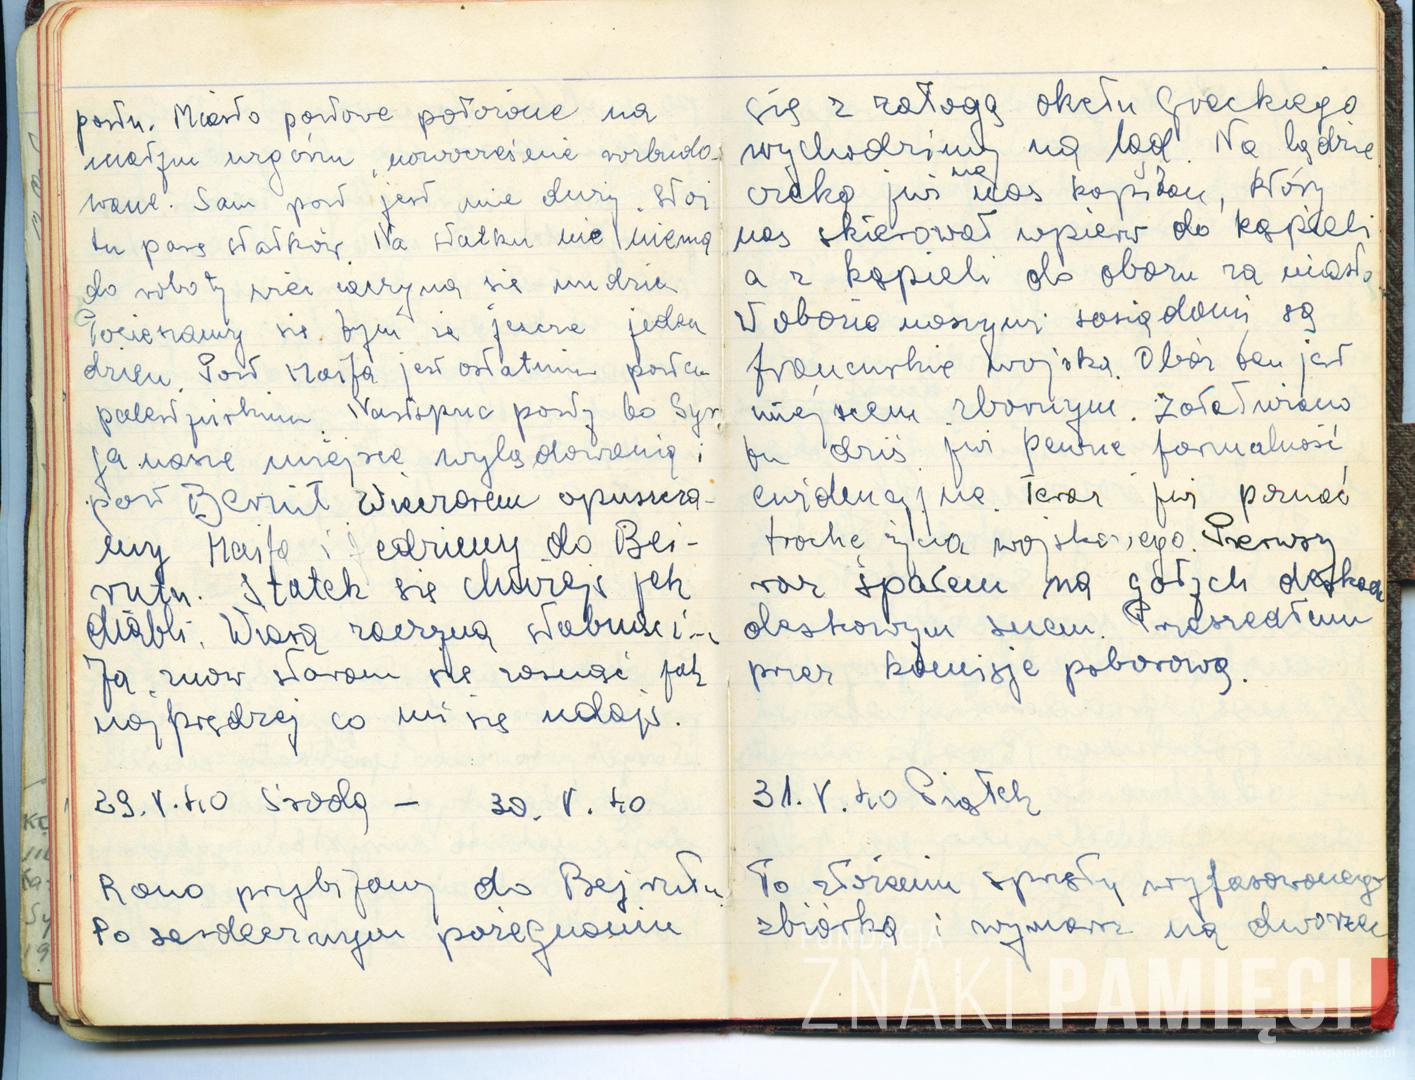 portu. Miasto portowe położone na
małym wzgórzu nowocześnie rozbudo-
wane. Sam port jest nie duży. Stoi
tu parę statków. Na statku nic niema
do roboty więc zaczyna się nudzić.
Pocieszamy się tym że jeszcze jeden
dzień. Port Haifa jest ostatnim portem
palestyńskim. Następne porty to Syr-
ja nasze miejsce wylądowania i
port Beirut. Wieczorem opuszcza-
my Haifę i jedziemy do Bei-
rutu. Statek się chwieje jak
diabli. Wiara zaczyna słabnąć.
Ja znów staram się zasnąć jak
najprędzej co mi się udaje.
29.V.40 Środa – 30.V.40
Rano przybijamy do Bejrutu.
Po serdecznym pożegnaniu
się z załogą okrętu Greckiego
wychodzimy na ląd. Na lądzie
czeka już na nas kapitan, który
nas skierował wpierw do kąpieli
a z kąpieli do obozu za miasto
W obozie naszymi sąsiadami są
francuskie wojska. Obóz ten jest
miejscem zbornym. Załatwiono
tu dziś już pewne formalności
ewidencyjne. Teraz już poznać
trochę życia wojskowego. Pierwszy
raz spałem na gołych deskach
deskowym snem. Przeszedłem
przez komisję poborową.
31.V.40 Piątek
Po złożeniu sprzętu wyfasowanego
zbiórka i wymarsz na dworzec
FUNDACJA
ZNAKI PAMIĘCI